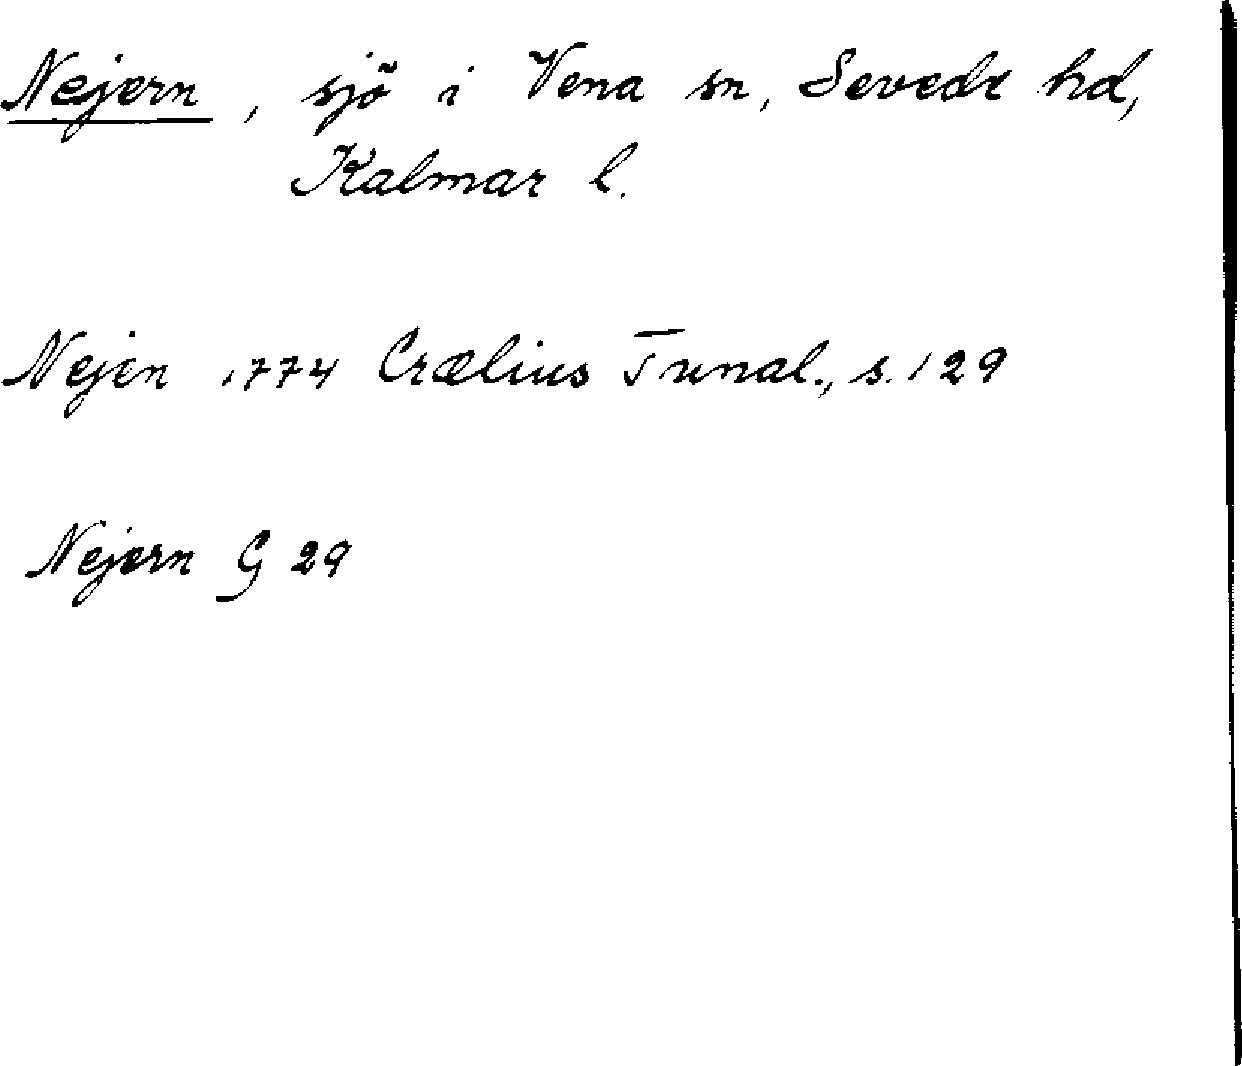 Nejern, sjö i Vena sn, Sevede hd,
Kalmar l.
Nejen 1774 Crælius Tunal., s. 129
Nejern G 29